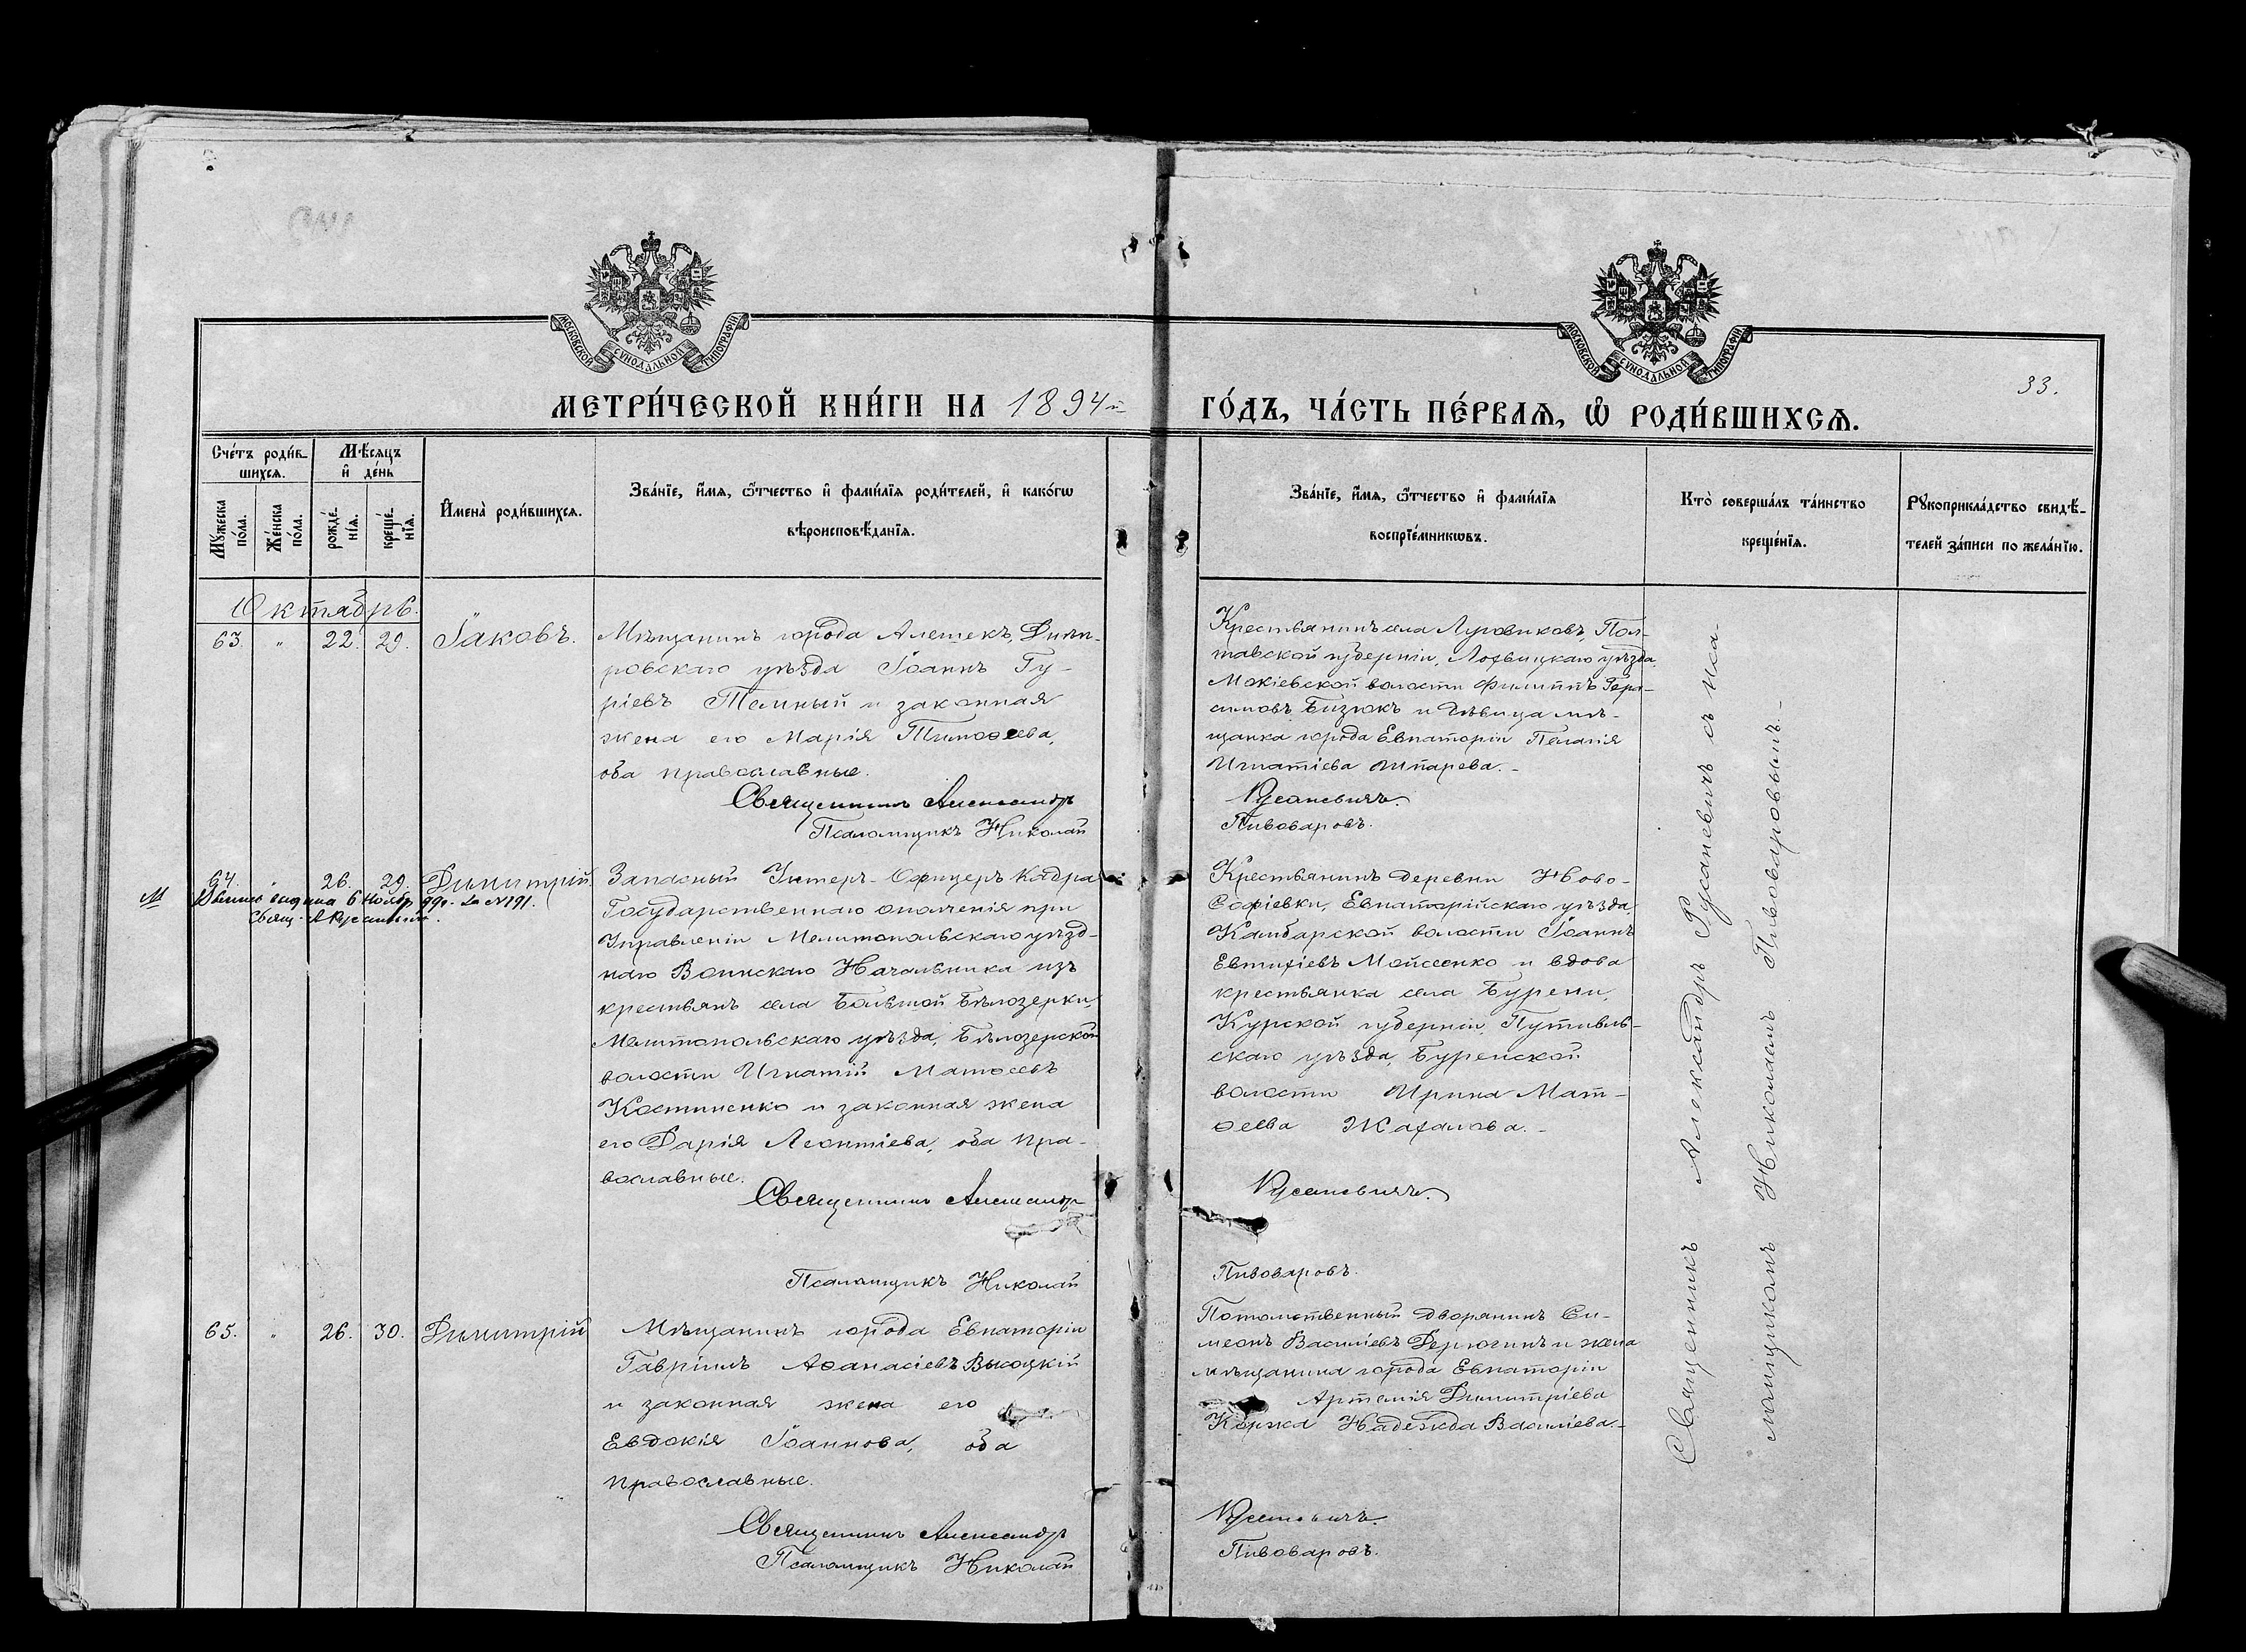 МОСКОВСКОЙ СѴНОДАЛЬНОЙ ТИПОГРАФІИ
МОСКОВСКОЙ СѴНОДАЛЬНОЙ ТИПОГРАФІИ
33.
МЕТРИ́ЧЕСКОЙ КНИ́ГИ НА 1894й
ГО́ДЪ, ЧА́СТЬ ПЕ́РВАѦ, Ѡ҆ РОДИ́ВШИХСѦ.
Сче́тъ роди́в-
шихсѧ.
Мѣ́сѧцъ
и҆ де́нь
Мꙋ́жеска
по́ла.
Же́нска
по́ла.
рожде́-
нїѧ.
креще́-
нїѧ.
И҆мена̀ роди́вшихсѧ.
Зва́нїе, и҆́мѧ, ѻ҆́тчество и҆ фами́лїѧ роди́телей, и҆ како́гѡ
вѣроисповѣ́данїѧ.
Зва́нїе, и҆́мѧ, ѻ҆́тчество и҆ фами́лїѧ
воспрїе́мникѡвъ.
Кто̀ соверша́лъ та́инство
креще́нїѧ.
Рꙋкоприкла́дство свидѣ́-
телей за́писи по жела́нїю.
Октябрь.
63. " 22. 29. Іаковъ.
Мѣщанинъ города Алешекъ, Днѣп-
ровскаго уѣзда Іоаннъ Гу-
ріевъ Темный и законная
жена его Марія Тимоѳеева,
оба православные.
Священникъ Александръ
Псаломщикъ Николай
Крестьянинъ села Луговиковъ, Пол-
тавской губерніи, Лохвицкаго уѣзда,
Мокіевской волости Филиппъ Гера-
симовъ Бизюкъ и дѣвица мѣ-
щанка города Евпаторіи Пелагія
Игнатіева Шпарева.-
Русаневичъ.
Пивоваровъ.
64. 26. 29. Димитрій.
М
Свящ. А Русаневич.
Запасный Унтеръ-Офицеръ Кадра
Государственнаго ополченія при
Управленіи Мелитопольскаго уѣзд-
наго Воинскаго Начальника изъ
крестьянъ села Большой Бѣлозерки,
Мелитопольскаго уѣзда, Бѣлозерской
волости Игнатій Матѳеевъ
Костиненко и законная жена
его Дарія Леонтіева, оба пра-
вославные.
Священникъ Александр
Псаломщикъ Николай
Крестьянинъ деревни Ново-
Софіевки, Евпаторійскаго уѣзда,
Камбарской волости Іоаннъ
Евтихіевъ Мойсеенко и вдова
крестьянка села Бурени,
Курской губерніи, Путивль-
скаго уѣзда, Буренской
волости Ирина Мат-
ѳеева Жахалова.-
Русаневичъ.
Пивоваровъ.
65. " 26. 30. Димитрій
Мѣщанинъ города Евпаторіи
Гавріилъ Аѳанасіевъ Высоцкій
и законная жена его
Евдокія Іоаннова, оба
православные.
Священникъ Александръ
Псаломщикъ Николай
Потомственный дворянинъ Си-
меонъ Василіевъ Дерюгинъ и жена
мѣщанина города Евпаторіи
Артемія Димитріева
Коржа Надежда Василіева.-
Русаневичъ.
Пивоваровъ.
Священникъ Александръ Русаневичъ съ пса-
ломщикомъ Николаемъ Пивоваровымъ.-